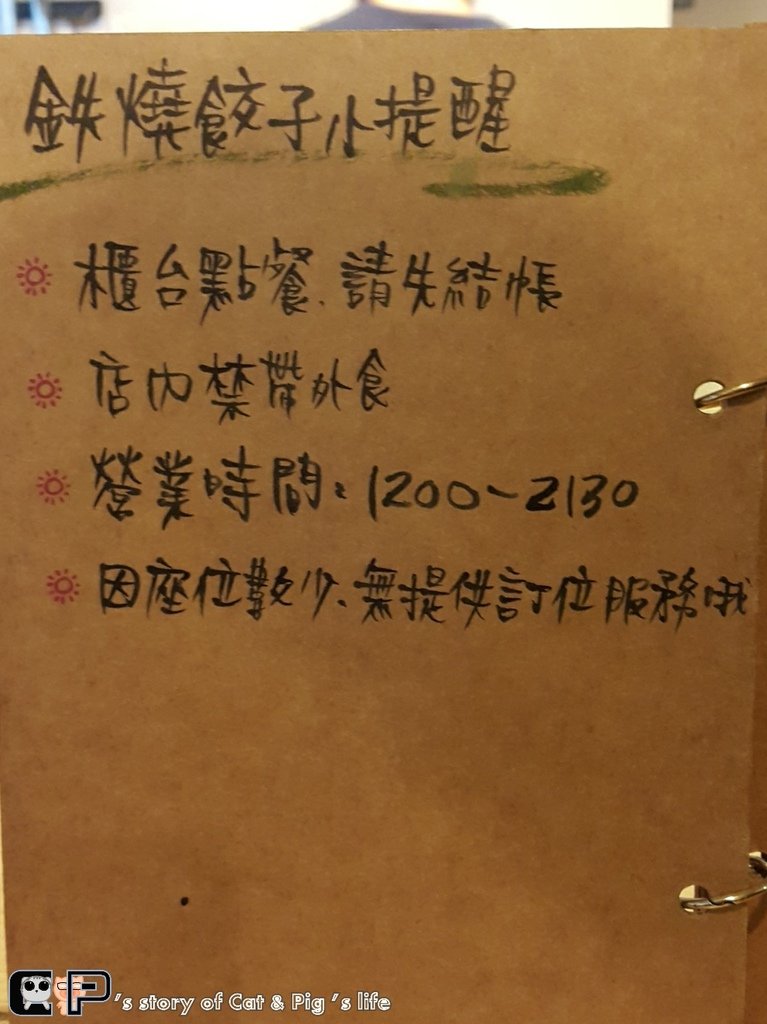 鉄燒餃子小提醒
櫃台點餐、請先結帳
店內禁帶外食
營業時間：1200~2130
因座位數少、無提供訂位服務哦
CP's story of Cat & Pig's life